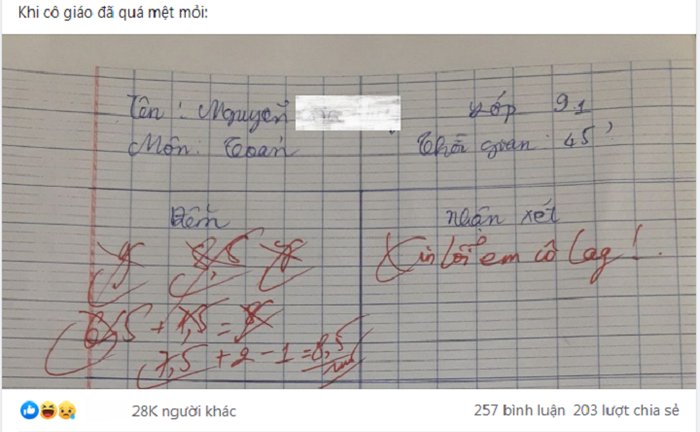 Khi cô giáo đã quá mệt mỏi:
Tên : Nguyễn
Lớp 9.1
Môn : Toán
Thời gian : 45'
Điểm
Nhận xét
Xin lỗi em cô lag !
7,5 + 2 - 1 = 8,5
28K người khác
257 bình luận 203 lượt chia sẻ